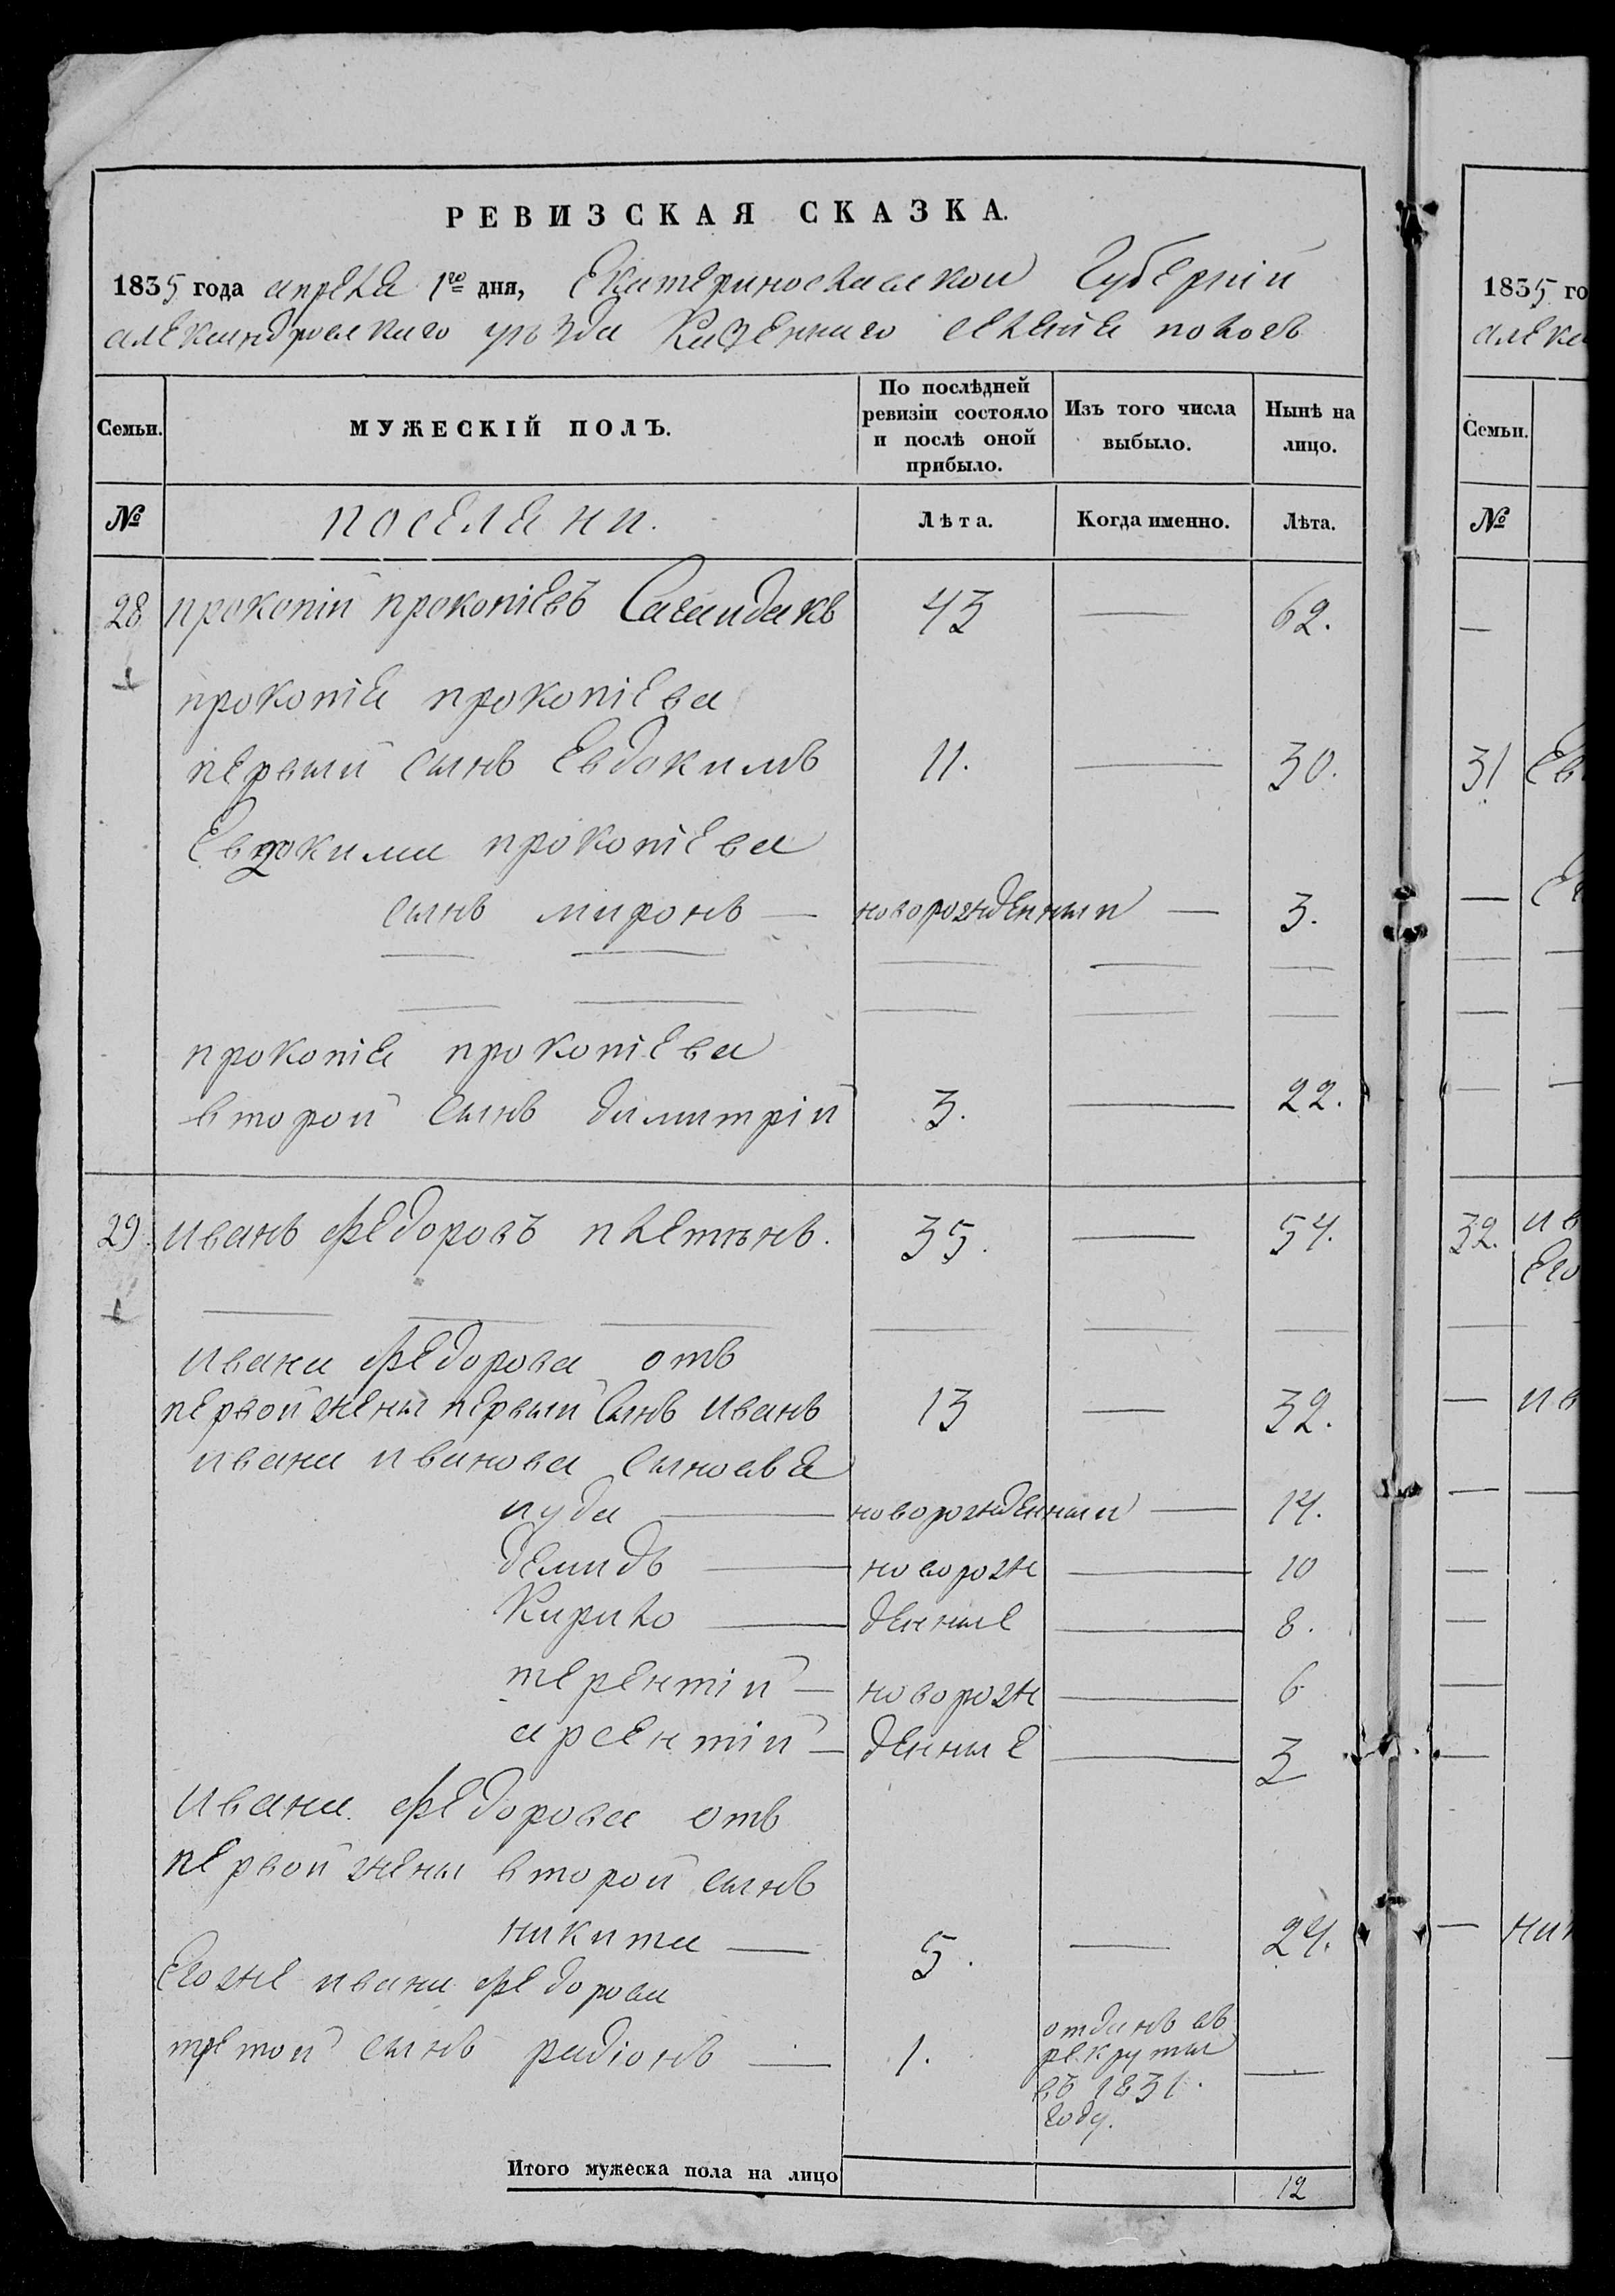 РЕВИЗСКАЯ СКАЗКА.
1835 года апреля 1го дня, Екатеринославской Губернiи
александровскаго уѣзда Казеннаго селенiя пологъ
Семьи. МУЖЕСКIЙ ПОЛЪ. По послѣдней ревизiи состояло и послѣ оной прибыло. Изъ того числа выбыло. Нынѣ на лицо.
№ поселяни. Лѣта. Когда именно. Лѣта.
28 прокопiй прокопiевъ Сагайдакъ 43 — 62.
прокопiя прокопiева
первый сынъ Евдокимъ 11. — 30.
Евдокима прокопiева
сынъ миронъ — новорожденный — 3.
прокопiя прокопiева
второй сынъ димитрiй 3. — 22.
29 иванъ федоровъ 35. — 54.
ивана федорова отъ
первой жены первый сынъ иванъ 13 — 32.
ивана иванова сыновья
иуда — новорожденный — 14.
демидъ — новорож — 10
Кирило — денные — 8.
терентiй — новорож — 6
арсентiй — денные — 3
ивана федорова отъ
первой жены второй сынъ
никита — 5. — 24.
Егоже ивана федорова
третой сынъ радiонъ — 1. отданъ въ рекруты въ 1831. году. —
Итого мужеска пола на лицо 12
1835 го
алек
Семьи.
№
31 Ев
32. ив
Его
ив
ни